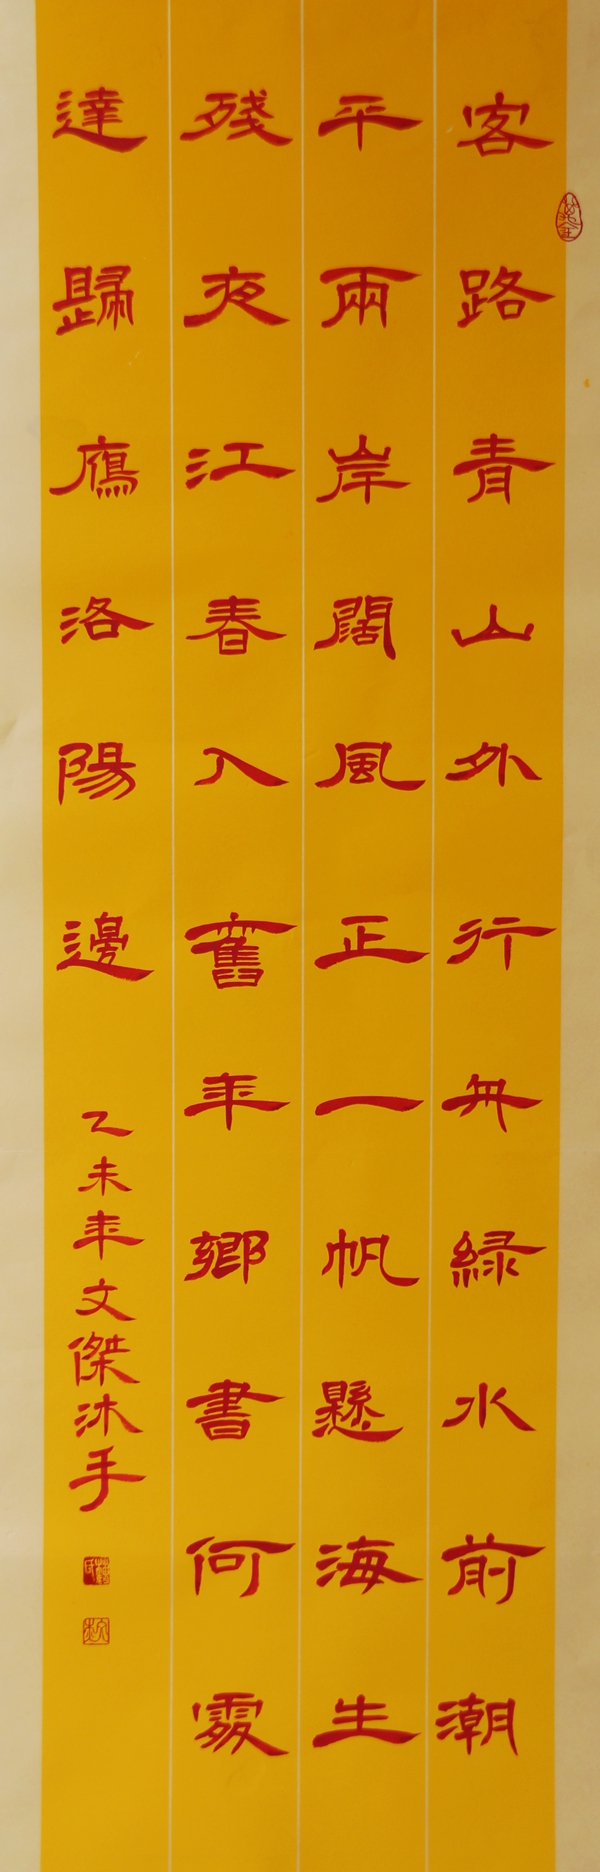 客路青山外行舟緑水前潮
平兩岸闊風正一帆懸海生
殘夜江春入舊年鄉書何處
達歸鴈洛陽邊
乙未年文傑沐手